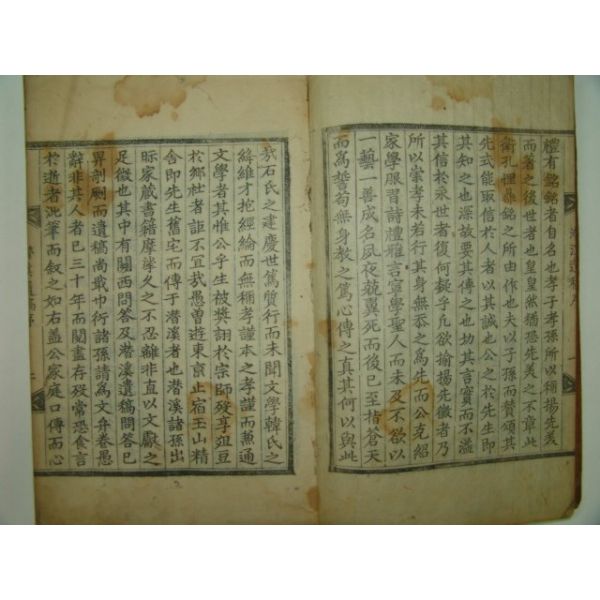 禮有銘銘者自名也孝子孝孫所以稱揚先美
而著之後世者也皇皇然猶恐先美之不章此
衛孔悝鼎銘之所由作也夫以子孫而贊頌其
先式能取信於人者以其誠也公之於先生即
其知之也深故要其傳之也切其言實而不溢
其信於永世者復何疑乎凡欲揄揚先徽者乃
所以崇孝未若行其身無忝之爲先而公克紹
家學服習詩禮雅言窂學聖人而未及不欲以
一藝一善成名夙夜兢翼死而後已至指蒼天
而爲誓苟無身教之篤心傳之真其何以與此
哉石氏之建慶世篤質行而未聞文學韓氏之
絳維才挖經綸而無稱孝謹本之孝謹而兼通
文學者其惟公乎生被奬詡於宗師歿享俎豆
於鄉社者詎不宜哉愚曽遊東京止宿玉山精
舍即先生舊宅而傳于潜溪者也潜溪諸孫出
眎家蔵書籍摩挲久之不忍離非直以文獻之
足徵也其中有關西問答及潜溪遺稿問答已
畀剞劂而遺稿尚戢巾衍諸孫請爲文弁卷愚
辭非其人者已三十年而閱盡存歿常恐食言
於逝者沘筆而叙之如右盖公家庭口傳而心